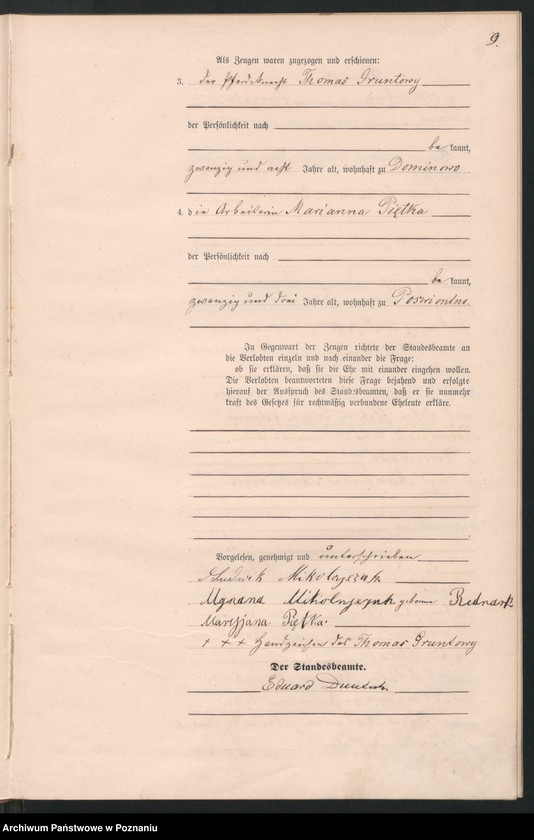 9.
Als Zeugen waren zugezogen und erschienen:
3. der Pferdeknecht Thomas Gruntowy
der Persönlichkeit nach
be kannt,
zwanzig und acht Jahre alt, wohnhaft zu Dominowo
4. die Arbeiterin Marianna Piętka
der Persönlichkeit nach
be kannt,
zwanzig und drei Jahre alt, wohnhaft zu
In Gegenwart der Zeugen richtete der Standesbeamte an
die Verlobten einzeln und nach einander die Frage:
ob sie erklären, daß sie die Ehe mit einander eingehen wollen.
Die Verlobten beantworteten diese Frage bejahend und erfolgte
hierauf der Ausspruch des Standesbeamten, daß er sie nunmehr
kraft des Gesetzes für rechtmäßig verbundene Eheleute erkläre.
Vorgelesen, genehmigt und unterschrieben
Ludwik Mikołajczak
Mikołajczak geborene Bednarek
Maryjana Piętka
+ + + Handzeichen des Thomas Gruntowy
Der Standesbeamte.
Eduard
Archiwum Państwowe w Poznaniu